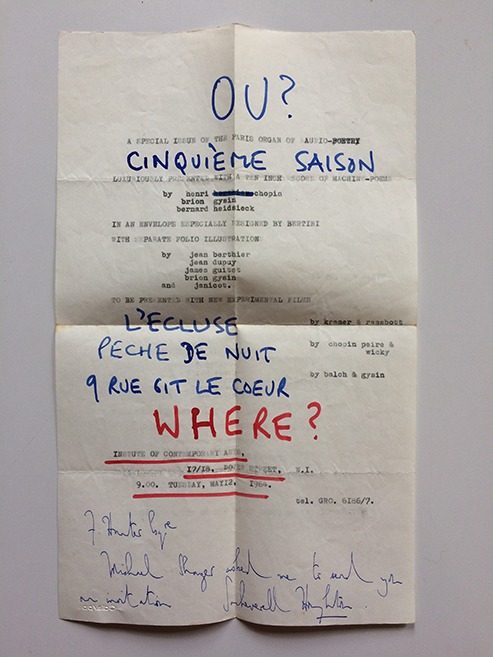 OU?
A SPECIAL ISSUE OF THE PARIS ORGAN OF AUDIO-POETRY
CINQUIÈME SAISON
LUXURIOUSLY PRESENTED WITH A TEN INCH OF MACHINE-POEMS
by henri chopin
brion gysin
bernard heidsieck
IN AN ENVELOPE ESPECIALLY DESIGNED BY BERTINI
WITH SEPARATE FOLIO ILLUSTRATION
by jean berthier
jean dupuy
james guitet
brion gysin
and janicot.
TO BE PRESENTED WITH NEW EXPERIMENTAL FILMS
L'ECLUSE
by kramer & ramsbott
PECHE DE NUIT
by chopin peire &
wicky
9 RUE GIT LE COEUR
by balch & gysin
WHERE?
INSTUTE OF CONTEMPORARY ARTS,
17/18. DOVER STREET, N.I.
9.00. TUESDAY, MAY12. 1964.
tel. GRO. 6186/7.
Michael asked me to send you
an invitation